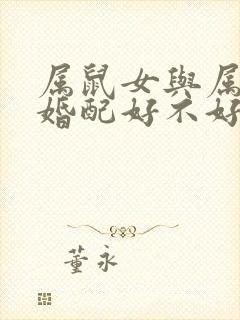 属鼠女與属
婚配好不好
董永